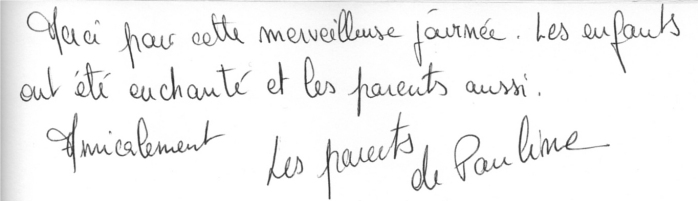 Merci pour cette merveilleuse journée. Les enfants
ont été enchanté et les parents aussi.
Amicalement Les parents
de Pauline